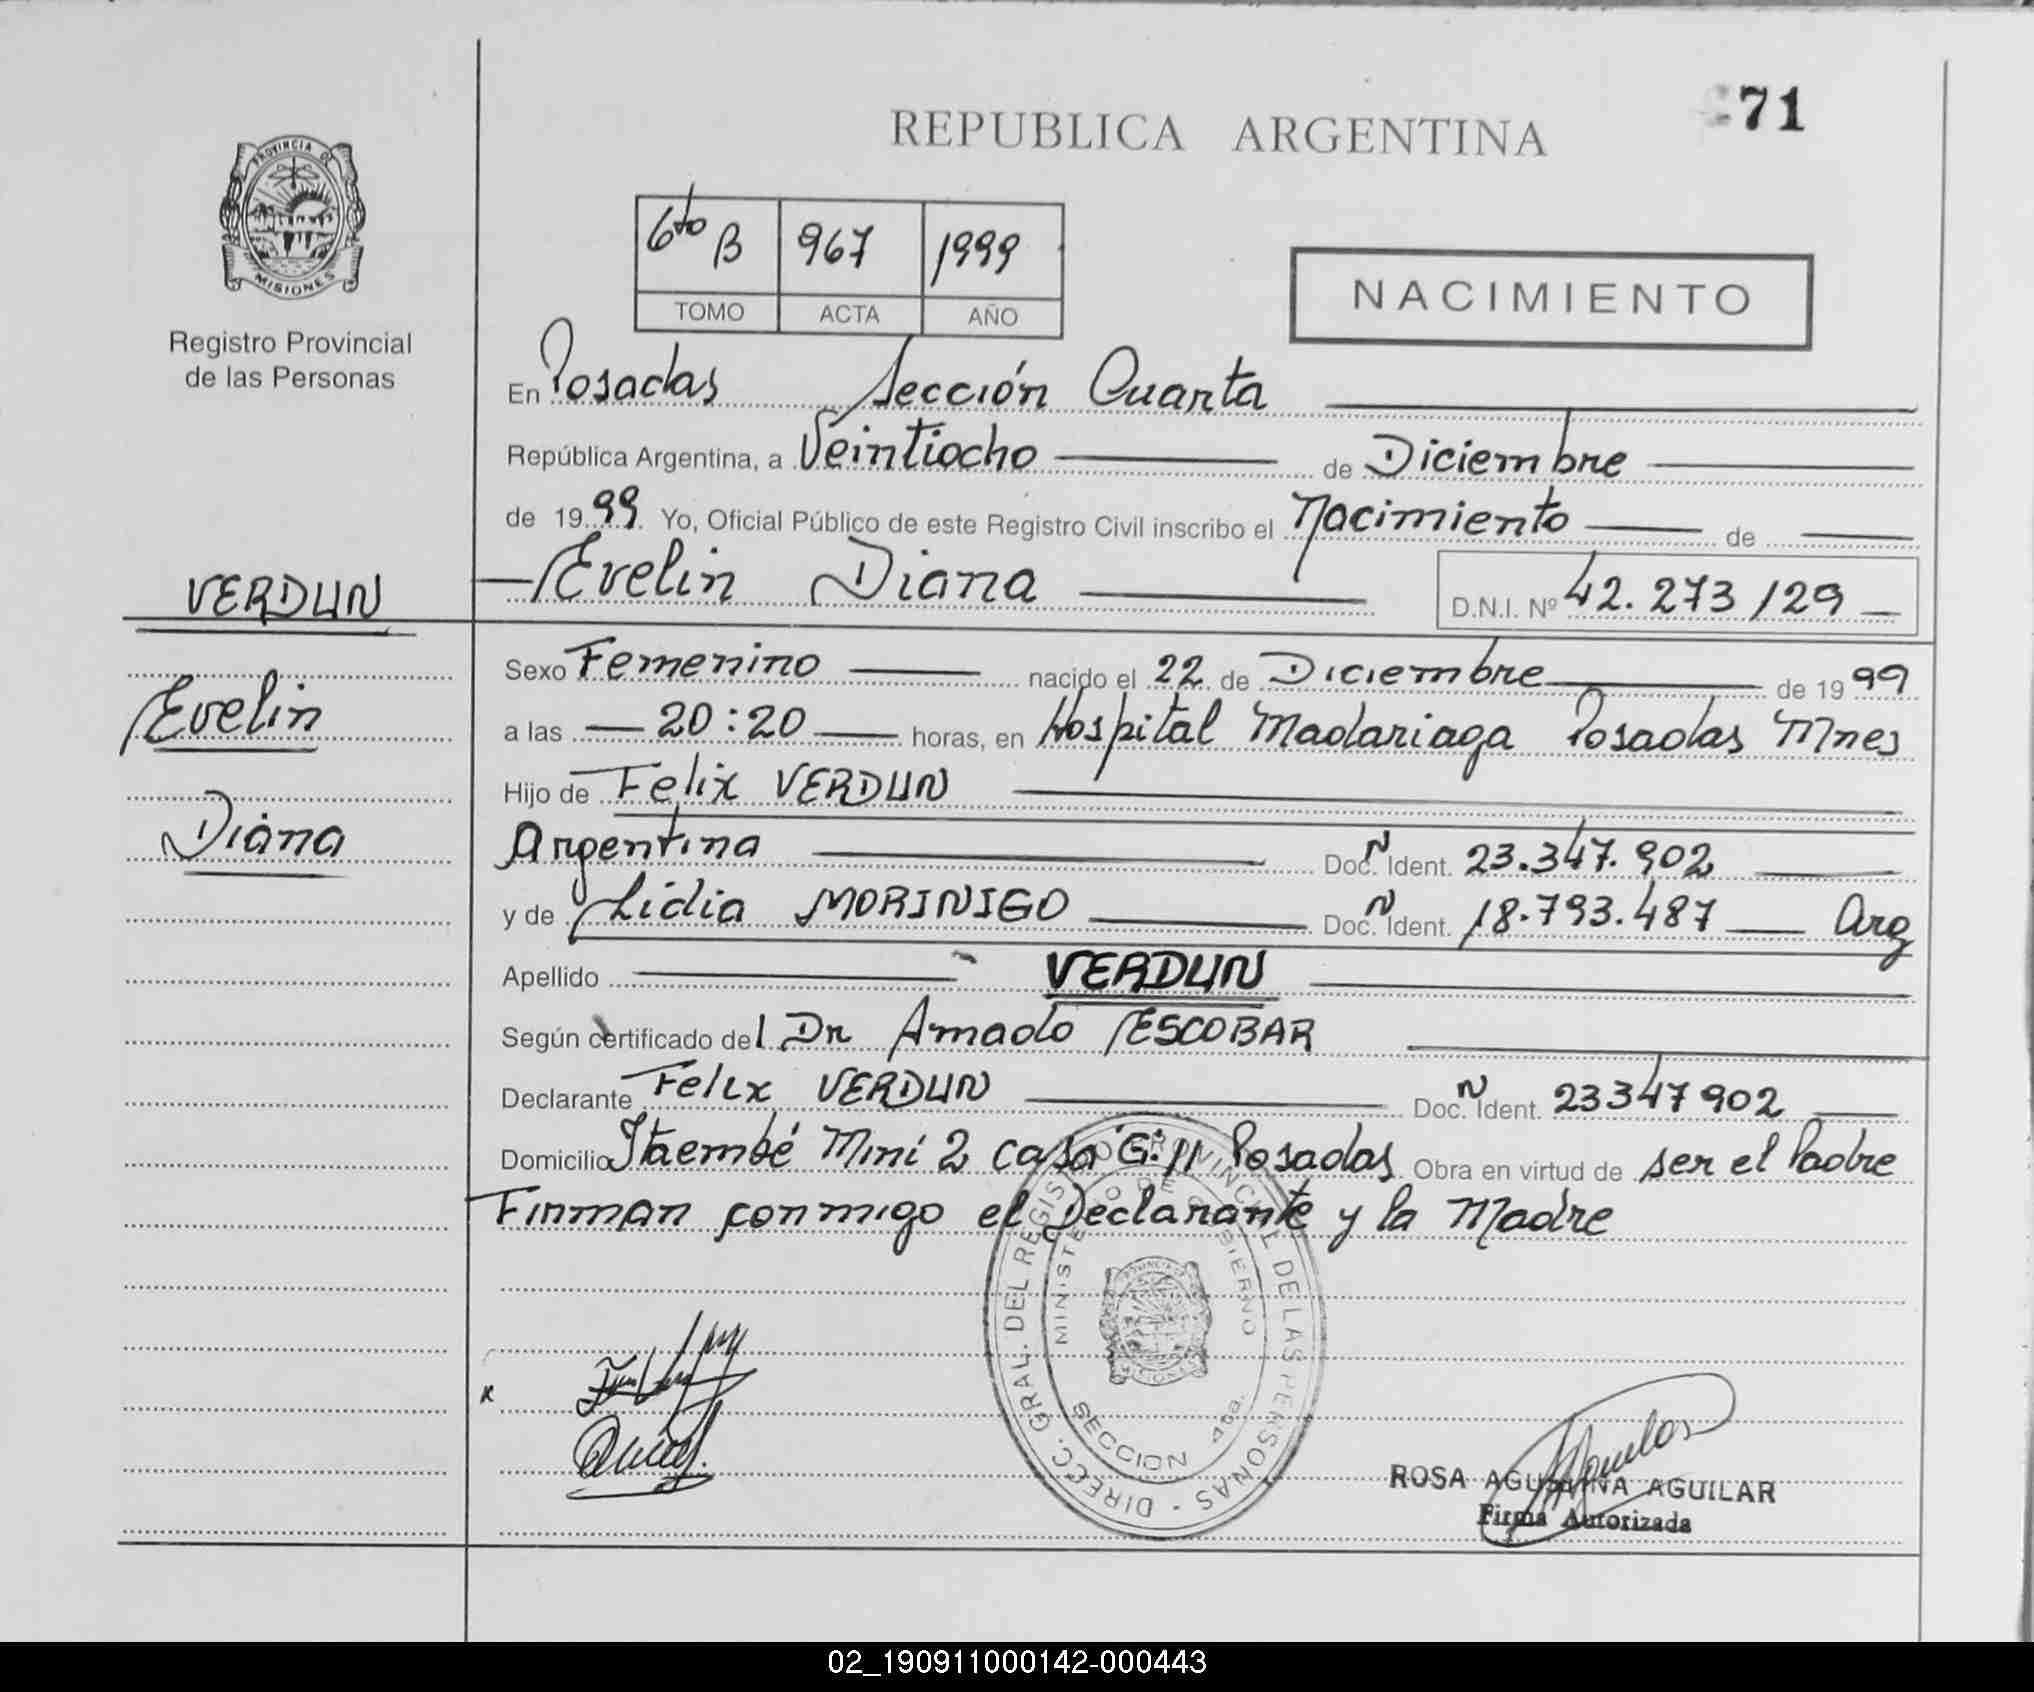 71
REPUBLICA ARGENTINA
PROVINCIA DE
MISIONES
Registro Provincial
de las Personas
6to B 967 1999
TOMO ACTA AÑO
NACIMIENTO
En Posadas Sección Cuarta
República Argentina, a Veintiocho de Diciembre
de 1999 Yo, Oficial Público de este Registro Civil inscribo el Nacimiento de
VERDUN
Evelin Diana D.N.I. Nº 42.273129
Evelin
Diana
Sexo Femenino nacido el 22 de Diciembre de 1999
a las 20:20 horas, en Hospital Madariaga Posadas Mnes
Hijo de Felix VERDUN
Argentina Doc. N Ident. 23.347.902
y de Lidia MORINIGO Doc. N Ident. 18.793.487 Arg
Apellido VERDUN
Según certificado del Dr Amado ESCOBAR
Declarante Felix VERDUN Doc. N Ident. 23347902
Domicilio Itaembé Miní 2 casa G:11 Posadas Obra en virtud de ser el Padre
Firman conmigo el Declarante y la Madre
DIREC. GRAL. DEL REGISTRO PROVINCIAL DE LAS PERSONAS
MINISTERIO DE GOBIERNO
SECCION 4ta.
ROSA AGUSTINA AGUILAR
Firma Autorizada
02_190911000142-000443